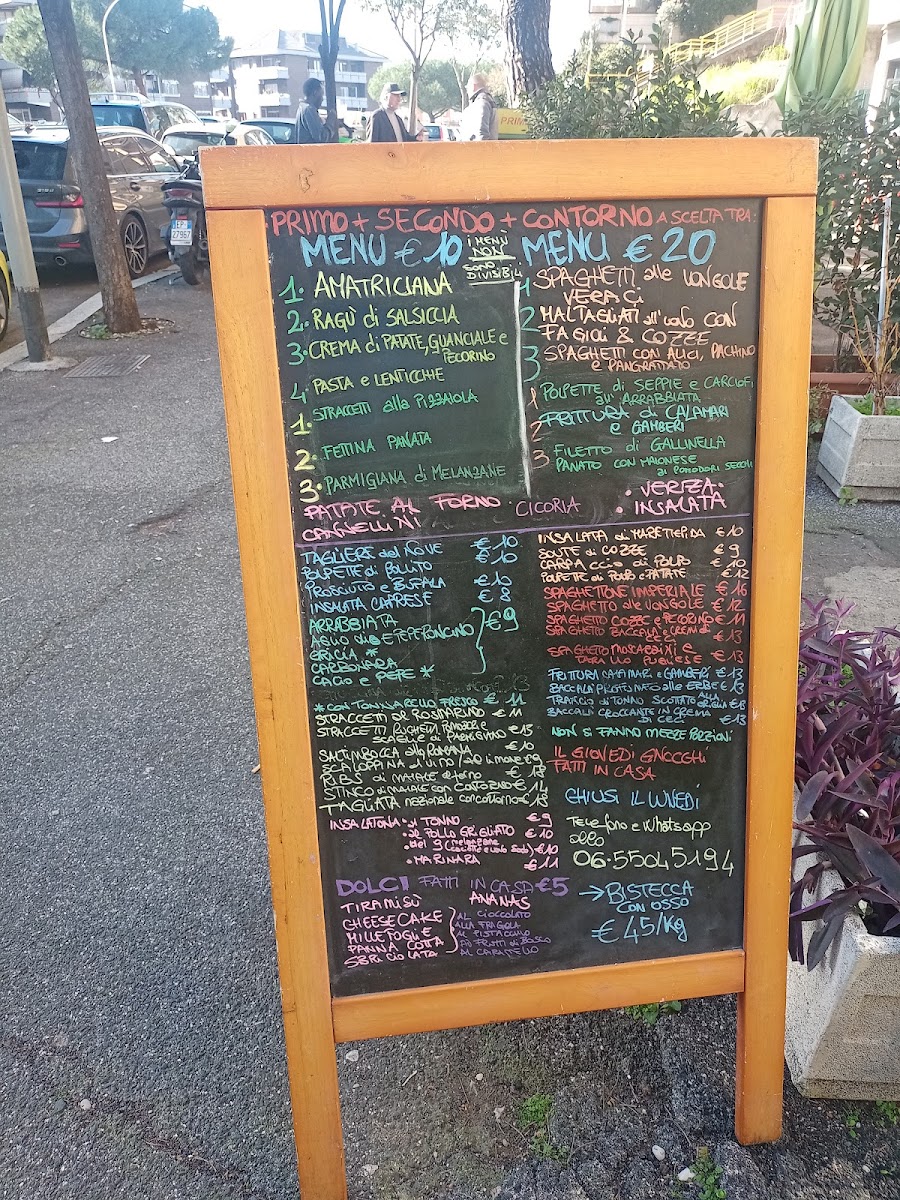 PRIMO + SECONDO + CONTORNO A SCELTA TRA:
MENU € 10
I MENÙ
NON
SONO
DIVISIBILI
1. AMATRICIANA
2. RAGÙ di SALSICCIA
3. CREMA di PATATE, GUANCIALE e
PECORINO
4. PASTA e LENTICCHIE
1. STRACCETTI alla PIZZAIOLA
2. FETTINA PANATA
3. PARMIGIANA di MELANZANE
MENU € 20
1 SPAGHETTI alle VONGOLE
VERACI
2 MALTAGLIATI all'uovo CON
FAGIOLI & COZZE
3 SPAGHETTI CON ALICI, PACHINO
e PANGRATTATO
1 POLPETTE di SEPPIE e CARCIOFI
all'ARRABBIATA
2 FRITTURA di CALAMARI
e GAMBERI
3 FILETTO di GALLINELLA
PANATO CON MAIONESE
ai POMODORI SECCHI
PATATE AL FORNO CICORIA • VERZA •
CANNELLINI • INSALATA
TAGLIERE del NOVE € 10
POLPETTE di BOLLITO € 10
PROSCIUTTO e BUFALA € 10
INSALATA CAPRESE € 8
ARRABBIATA
AGLIO OLIO E PEPERONCINO € 9
GRICIA *
CARBONARA
CACIO e PEPE *
* CON TONNARELLO FRESCO € 11
STRACCETTI al ROSMARINO € 11
STRACCETTI RUGHETTA POMODORI e € 13
SCAGLIE di PARMIGIANO
SALTIMBOCCA alla ROMANA € 10
SCALOPPINA al VINO / al limone € 9
RIBS di MAIALE al forno € 13
STINCO di MAIALE con CONTORNO € 14
TAGLIATA nazionale con contorno € 18
INSALATONA • al TONNO € 9
• al POLLO GRIGLIATO € 10
• del 9 € 10
• MARINARA € 11
DOLCI FATTI IN CASA € 5
TIRAMISÙ ANANAS
CHEESECAKE
MILLEFOGLIE
PANNA COTTA
SBRICIOLATA
AL CIOCCOLATO
ALLA FRAGOLA
AL PISTACCHIO
AI FRUTTI di BOSCO
AL CARAMELLO
INSALATA di MARE TIEPIDA € 10
SOUTE di COZZE € 9
CARPACCIO di POLPO € 10
POLPETTE di POLPO e PATATE € 12
SPAGHETTONE IMPERIALE € 16
SPAGHETTO alle VONGOLE € 12
SPAGHETTO COZZE e PECORINO € 11
SPAGHETTO BACCALÀ e CREMA di
CECI € 13
SPAGHETTO MOSCARDINI e
TARALLO PUGLIESE € 13
FRITTURA CALAMARI e GAMBERI € 13
BACCALÀ alle ERBE € 13
TRANCIO di TONNO SCOTTATO ALLA
GRIGLIA € 18
BACCALÀ CROCCANTE IN CREMA
di CECI € 13
NON SI FANNO MEZZE PORZIONI
IL GIOVEDÌ GNOCCHI
FATTI IN CASA
CHIUSI IL LUNEDÌ
Telefono e Whatsapp
allo
06.55045194
→ BISTECCA
CON OSSO
€ 45/Kg